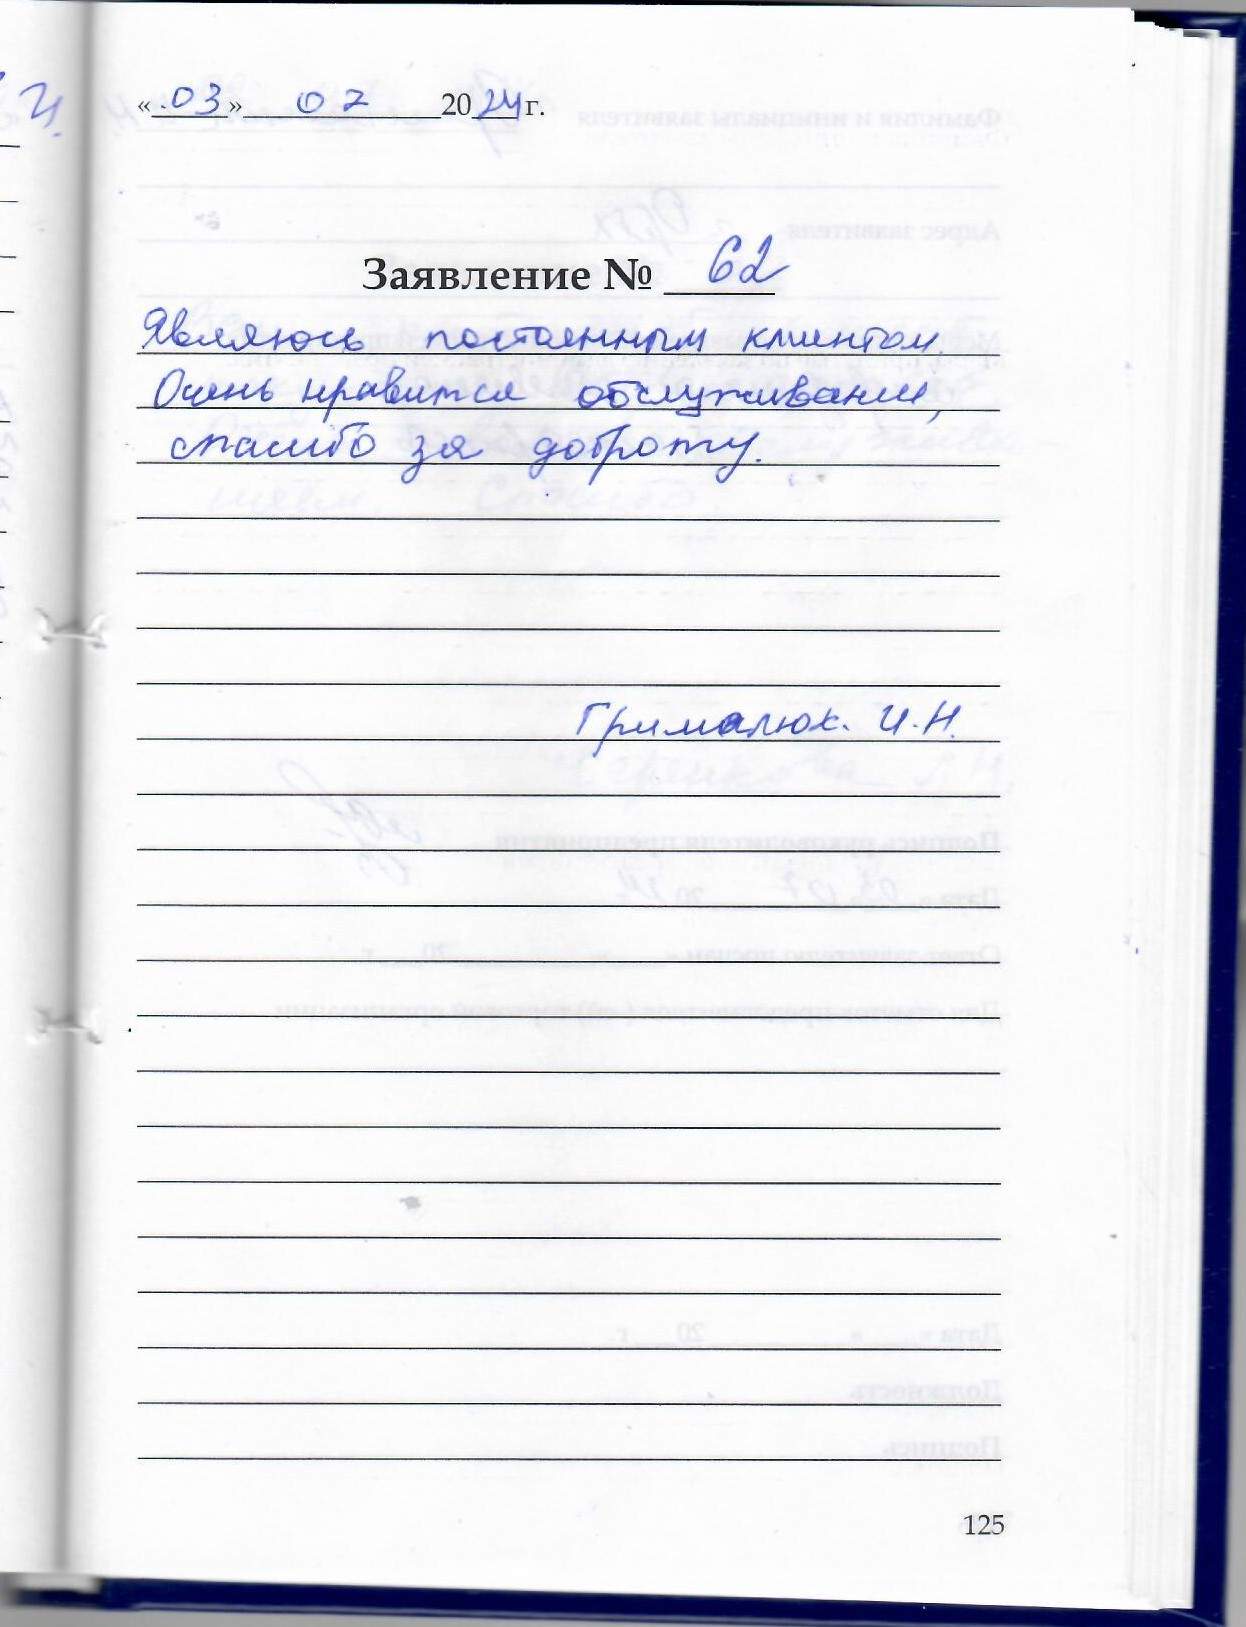 « 03 » 07 2024 г.
Заявление № 62
Являюсь постоянным клиентом,
Очень нравится обслуживание,
спасибо за доброту.
Грималюк. И.Н.
125